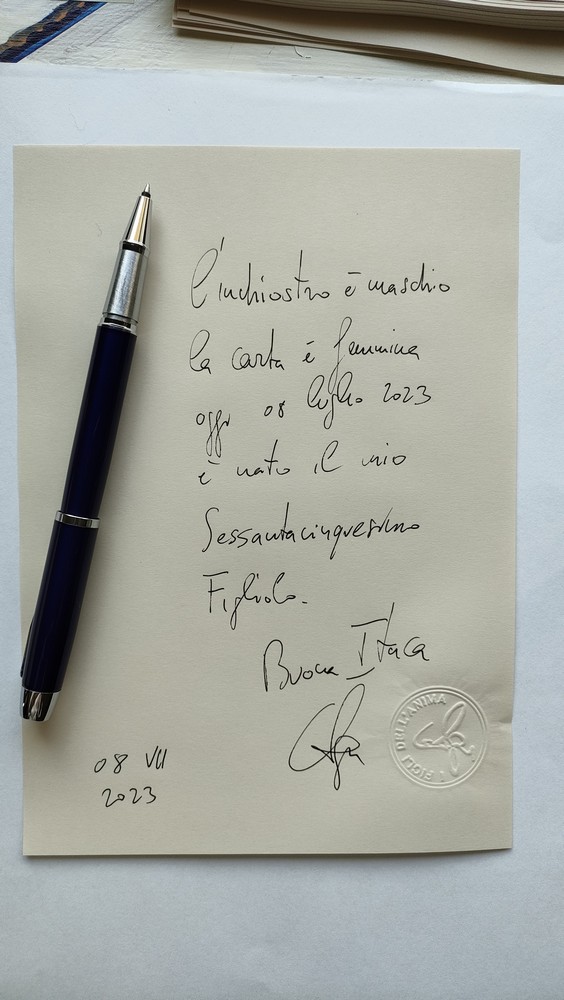 L'inchiostro è maschio
la carta è femmina
oggi 08 luglio 2023
è nato il mio
Sessantacinquesimo
Figliolo.
Buona Itaca
08 VII
2023
I FIGLI DELL'ANIMA